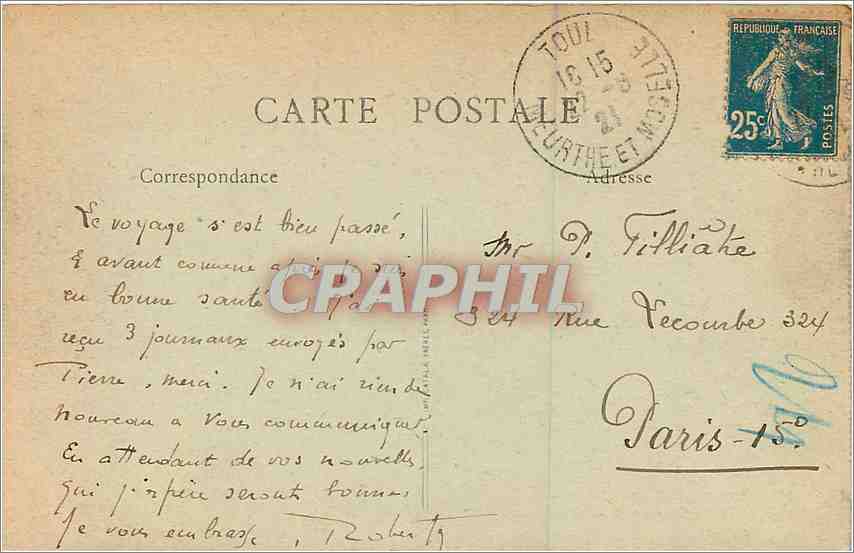 CARTE POSTALE
TOUL
16 15
21
MEURTHE ET MOSELLE
REPUBLIQUE FRANÇAISE
25c
POSTES
Correspondance
Adresse
Le voyage s'est bien passé,
& avant comme après je suis
en bonne santé
reçu 3 journaux envoyés par
Pierre, merci. Je n'ai rien de
nouveau a vous communiquer,
En attendant de vos nouvelles
qui j'espère seront bonnes
Je vous embrasse,
Mr P. Filliâtre
324 Rue Lecourbe 324
Paris - 15°
CPAPHIL